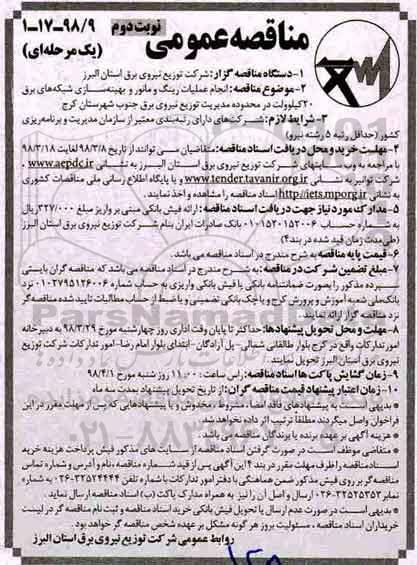 مناقصه عمومی
نوبت دوم
۹۸/۹-۱۷-۱
(یک مرحله‌ای)
۱- دستگاه مناقصه گزار: شرکت توزیع نیروی برق استان البرز
۲- موضوع مناقصه: انجام عملیات رینگ و مانور و بهینه‌سازی شبکه‌های برق
۲۰ کیلوولت در محدوده مدیریت توزیع نیروی برق جنوب شهرستان کرج
۳- شرایط لازم: شرکت‌های دارای رتبه‌بندی معتبر از سازمان مدیریت و برنامه‌ریزی
کشور (حداقل رتبه ۵ رشته نیرو)
۴- مهلت خرید و محل دریافت اسناد مناقصه: متقاضیان می توانند از تاریخ ۹۸/۳/۸ لغایت ۹۸/۳/۱۸
با مراجعه به وب سایتهای شرکت توزیع نیروی برق استان البرز به نشانی www.aepdc.ir ،
شرکت توانیر به نشانی www.tender.tavanir.org.ir و یا پایگاه اطلاع رسانی ملی مناقصات کشوری
به نشانی http://iets.mporg.ir اسناد مناقصه را مشاهده و اخذ نمایند.
۵- مدارک مورد نیاز جهت دریافت اسناد مناقصه: ارائه فیش بانکی مبنی بر واریز مبلغ ۳۲۷/۰۰۰ ریال
به شماره حساب ۰۱۰۱۵۲۰۱۵۲۰۰۶ بانک صادرات ایران بنام شرکت توزیع نیروی برق استان البرز
(طی مدت زمان قید شده در بند ۴)
۶- قیمت پایه مناقصه به شرح مندرج در اسناد مناقصه می باشد.
۷- مبلغ تضمین شرکت در مناقصه: به شرح مندرج در اسناد مناقصه می باشد که مناقصه گران بایستی
سپرده مذکور را بصورت ضمانتنامه بانکی یا فیش بانکی واریزی به حساب شماره ۰۲۷۹۵۱۳۶۰۰۶ نزد
بانک ملی شعبه آموزش و پرورش کرج و یا چک بانکی تضمینی و یا ضبط از حساب مطالبات تایید شده مناقصه گر
نزد مناقصه گزار ارائه نمایند.
۸- مهلت و محل تحویل پیشنهادها: حداکثر تا پایان وقت اداری روز چهارشنبه مورخ ۹۸/۳/۲۹ به دبیرخانه
امور تدارکات واقع در کرج بلوار طالقانی شمالی- پل آزادگان -ابتدای بلوار امام رضا- امور تدارکات شرکت توزیع
نیروی برق استان البرز تحویل نمایند
۹- زمان گشایش پاکت ها اسناد مناقصه: راس ساعت ۱۱:۰۰ روز شنبه مورخ ۹۸/۴/۱
۱۰- زمان اعتبار پیشنهاد قیمت مناقصه گران: از تاریخ تحویل پیشنهاد بمدت سه ماه
* بدیهی است به پیشنهادهای فاقد امضا، مشروط، مخدوش و یا پیشنهادهایی که پس از مهلت مقرر در این
فراخوان واصل میگردند مطلقاً ترتیب اثر داده نخواهد شد
* هزینه آگهی بر عهده برنده یا برندگان مناقصه می باشد.
* متقاضی موظف است در صورت گرفتن اسناد مناقصه از سایت های مذکور فیش پرداخت هزینه خرید
اسناد مناقصه را ظرف مهلت مقرر در بند ۴ این آگهی پس از قید شماره مناقصه، نام و آدرس و شماره تماس
مناقصه گر بر روی فیش مذکور ضمن هماهنگی با دفتر امور تدارکات با شماره تلفن ۳۲۵۲۴۴۴۴-۰۲۶ به شماره
نمابر ۳۲۵۲۵۳۵۲-۰۲۶ ارسال و اصل آن را نیز به همراه مدارک پاکت (ب) اسناد مناقصه ارسال نماید.
* بدیهی است در صورت عدم ارسال یا تحویل فیش بانکی خرید اسناد مناقصه و ثبت نام مناقصه گر در لیست
خریداران اسناد مناقصه، مسئولیت بروز هر گونه مشکل بر عهده شخص مناقصه گر خواهد بود.
روابط عمومی شرکت توزیع نیروی برق استان البرز